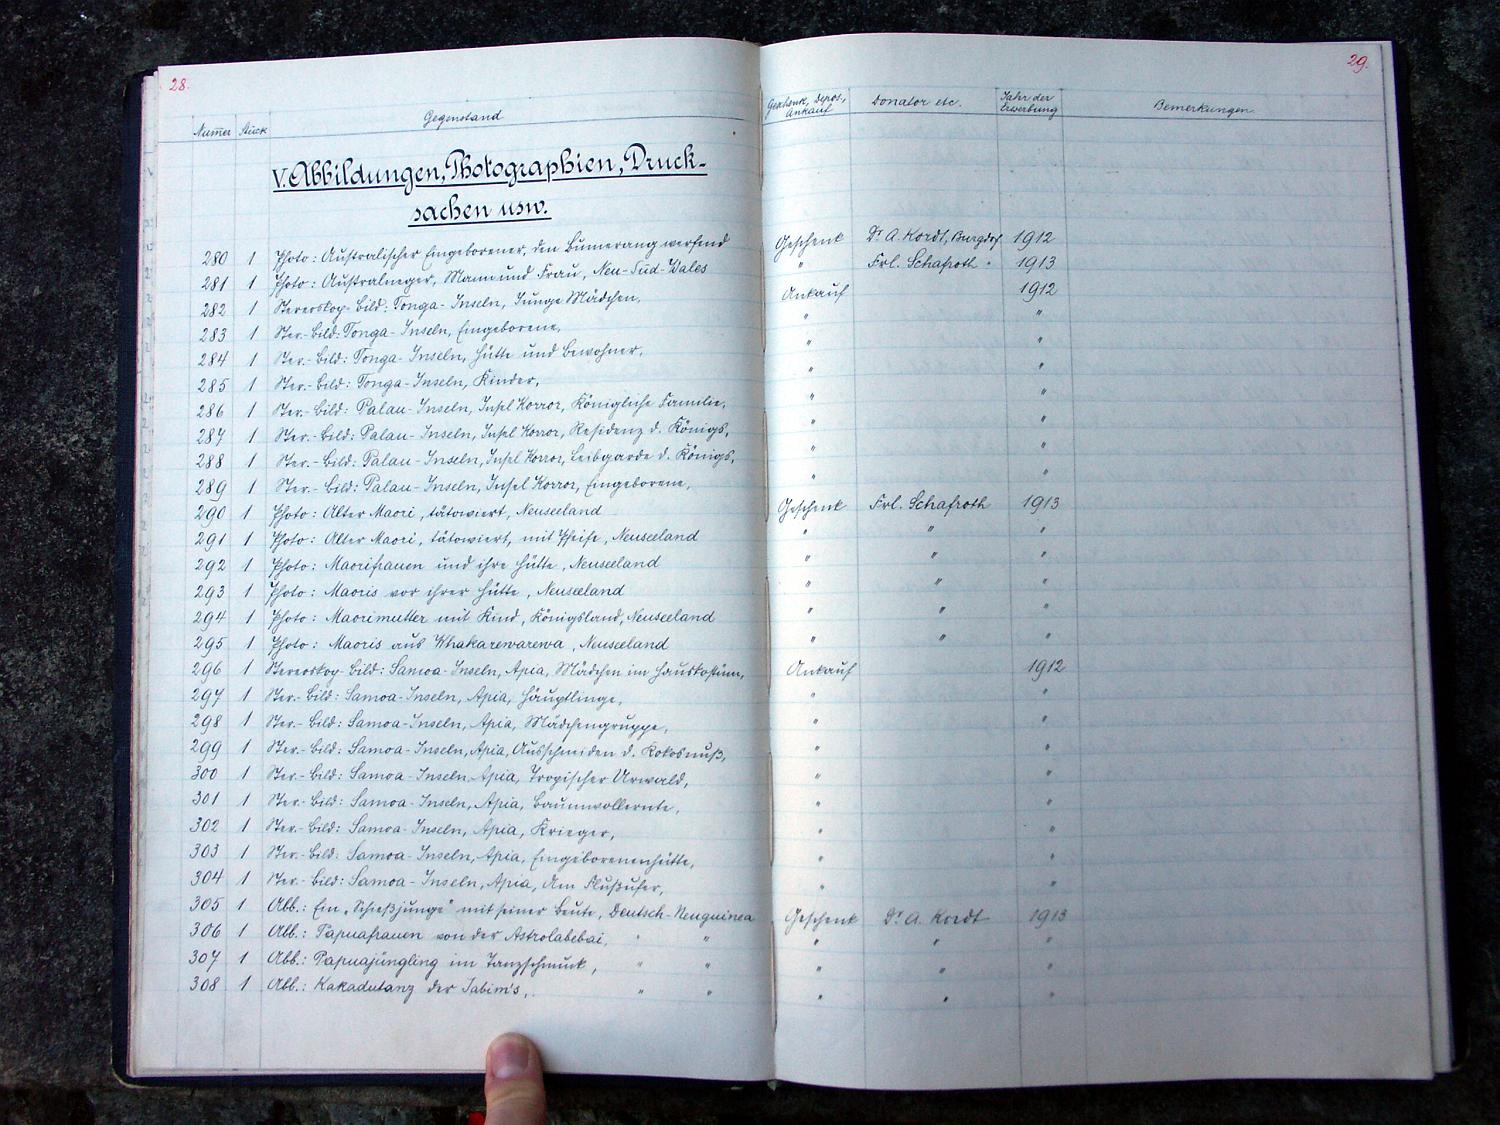 28.
29.
Numer Stück Gegenstand Geschenk, Depos., Ankauf Donator etc. Jahr der Erwerbung Bemerkungen
V. Abbildungen, Photographien, Druck-
sachen usw.
280 1 Photo: Australischer Eingeborener, den Bumerang werfend Geschenk Dr. A. Kordt, Burgdorf 1912
281 1 Photo: Australneger, Mann und Frau, Neu-Süd-Wales " Frl. Schafroth " 1913
282 1 Stereoskop-Bild: Tonga-Inseln, Junge Mädchen, Ankauf 1912
283 1 Ster.-Bild: Tonga-Inseln, Eingeborene, " "
284 1 Ster.-Bild: Tonga-Inseln, Hütte und Bewohner, " "
285 1 Ster.-Bild: Tonga-Inseln, Kinder, " "
286 1 Ster.-Bild: Palau-Inseln, Insel Korror, Königliche Familie, " "
287 1 Ster.-Bild: Palau-Inseln, Insel Korror, Residenz d. Königs, " "
288 1 Ster.-Bild: Palau-Inseln, Insel Korror, Leibgarde d. Königs, " "
289 1 Ster.-Bild: Palau-Inseln, Insel Korror, Eingeborene, " "
290 1 Photo: Alter Maori, tätowiert, Neuseeland Geschenk Frl. Schafroth 1913
291 1 Photo: Alter Maori, tätowiert, mit Pfeife, Neuseeland " " "
292 1 Photo: Maorifrauen und ihre Hütte, Neuseeland " " "
293 1 Photo: Maoris vor ihrer Hütte, Neuseeland " " "
294 1 Photo: Maorimutter mit Kind, Königsland, Neuseeland " " "
295 1 Photo: Maoris aus Whakarewarewa, Neuseeland " " "
296 1 Stereoskop-Bild: Samoa-Inseln, Apia, Mädchen im Hauskostüm, Ankauf 1912
297 1 Ster.-Bild: Samoa-Inseln, Apia, Häuptlinge, " "
298 1 Ster.-Bild: Samoa-Inseln, Apia, Mädchengruppe, " "
299 1 Ster.-Bild: Samoa-Inseln, Apia, Ausschneiden d. Kokosnuß, " "
300 1 Ster.-Bild: Samoa-Inseln, Apia, Tropischer Urwald, " "
301 1 Ster.-Bild: Samoa-Inseln, Apia, Baumwollernte, " "
302 1 Ster.-Bild: Samoa-Inseln, Apia, Krieger, " "
303 1 Ster.-Bild: Samoa-Inseln, Apia, Eingeborenenhütte, " "
304 1 Ster.-Bild: Samoa-Inseln, Apia, Am Flußufer, " "
305 1 Abb.: Ein „Schießjunge" mit seiner Beute, Deutsch-Neuguinea Geschenk Dr. A. Kordt 1913
306 1 Abb.: Papuafrauen von der Astrolabebai, " " " " "
307 1 Abb.: Papuajüngling im Tanzschmuck, " " " " "
308 1 Abb.: Kakadutanz der Jabim's, " " " " "